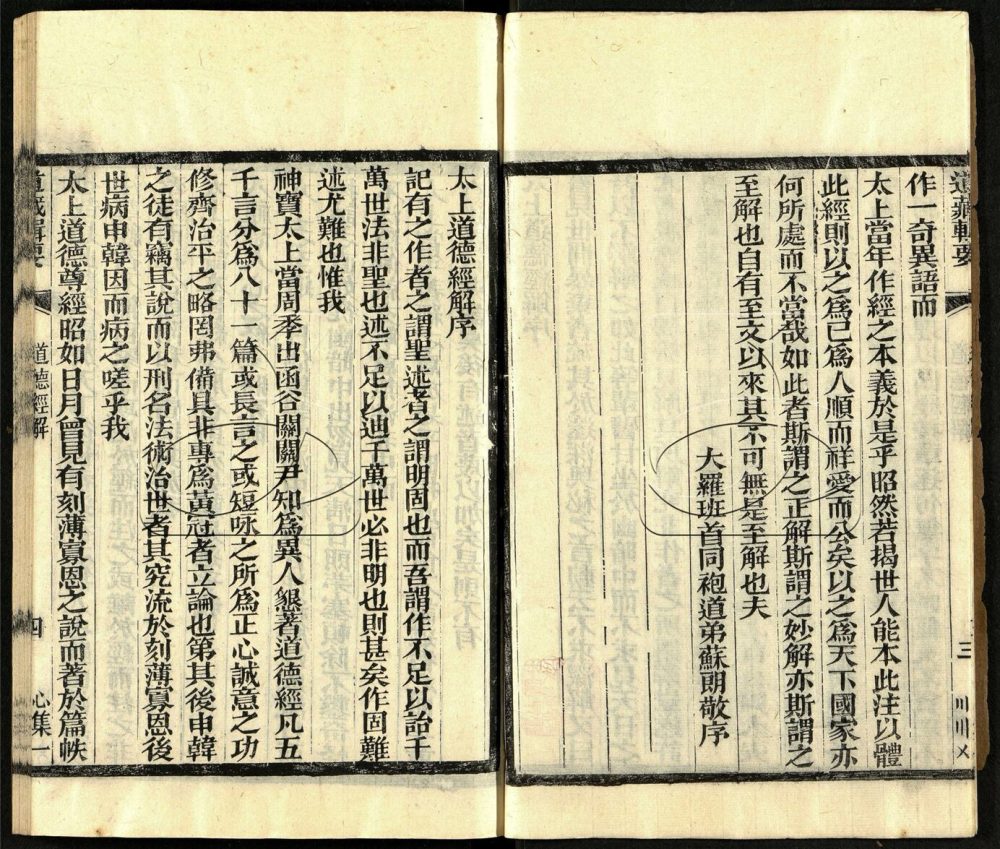 道藏輯要
三
作一奇異語而
太上當年作經之本義於是乎昭然若揭世人能本此注以體
此經則以之爲已爲人順而祥愛而公矣以之爲天下國家亦
何所處而不當哉如此者斯謂之正解斯謂之妙解亦斯謂之
至解也自有至文以來其不可無是至解也夫
大羅班首同袍道弟蘇朗敬序
太上道德經解序
記有之作者之謂聖述者之謂明固也而吾謂作不足以詒千
萬世法非聖也述不足以迪千萬世必非明也則甚矣作固難
述尤難也惟我
神寶太上當周季出函谷關關尹知爲異人懇著道德經凡五
千言分爲八十一篇或長言之或短咏之所爲正心誠意之功
修齊治平之略罔弗備具非專爲黃冠者立論也第其後申韓
之徒有竊其說而以刑名法術治世者其究流於刻薄寡恩後
世病申韓因而病之嗟乎我
太上道德尊經昭如日月曾見有刻薄寡恩之說而著於篇帙
道藏輯要
道德經解
四
心集一